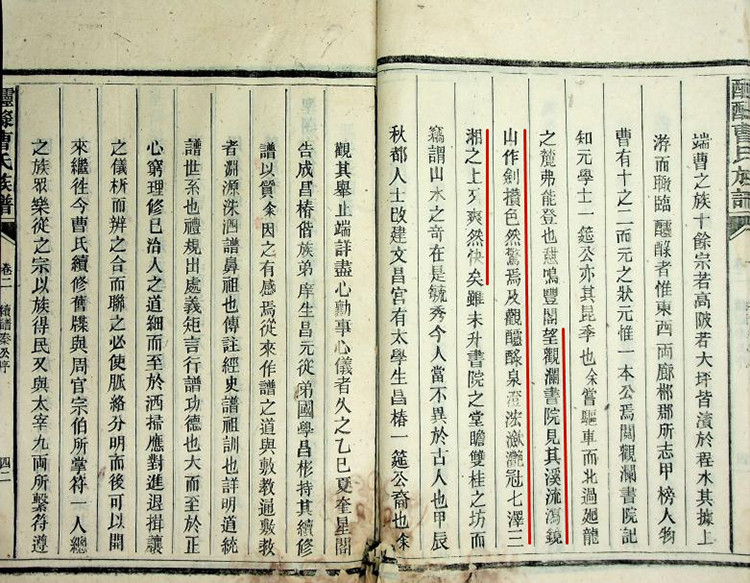 醽醁曹氏族譜
端曹之族十餘宗若高陂若大坪皆濱於程水其據上
游而瞰臨醽醁者惟東西兩廊郴郡所志甲榜人物
曹有十之二而元之狀元惟一本公焉閱觀瀾書院記
知元學士一筵公亦其昆季也余嘗驅車而北過廻龍
之麓弗能登也憇鳴豐閣望觀瀾書院見其溪流瀉鏡
山作劍攢色然驚焉及觀醽醁泉澄泫瀲灩冠七澤三
湘之上又爽然快矣雖未升書院之堂瞻雙桂之坊而
竊謂山水之奇在是毓秀今人當不異於古人也甲辰
秋都人士改建文昌宮有太學生昌椿一筵公裔也余
觀其舉止端詳盡心勷事心儀者久之乙巳夏奎星閣
告成昌椿偕族弟庠生昌元從弟國學昌彬持其續修
譜以質余因之有感焉從來作譜之道與敷教通敷教
者淵源洙泗譜鼻祖也傳註經史譜祖訓也詳明道統
譜世系也禮規出處義矩言行譜功德也大而至於正
心窮理修已治人之道細而至於洒掃應對進退揖讓
之儀析而辨之合而聯之必使脈絡分明而後可以開
來繼徃今曹氏續修舊牒與周官宗伯所掌符一人總
之族眾樂從之宗以族得民又與太宰九兩所繫符遵
醽醁曹氏族譜
卷二
續譜序
四二